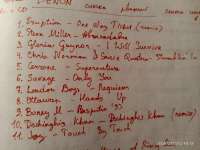 DENON
CD
1. Eruption - One Way Ticket (remix)
2. Fran Miller - 
3. Gloria Gaynor - I Will Survive
4. Chris Norman & Suzi Quatro - Stumblin' In
5. Cerrone - Supernature
6. Savage - Only You
7. London Boys - Requiem
8. Ottawan - Hands Up
9. Boney M - Rasputin
10. Dschinghis Khan - Dschinghis Khan (remix)
11. Joy - Touch By Touch